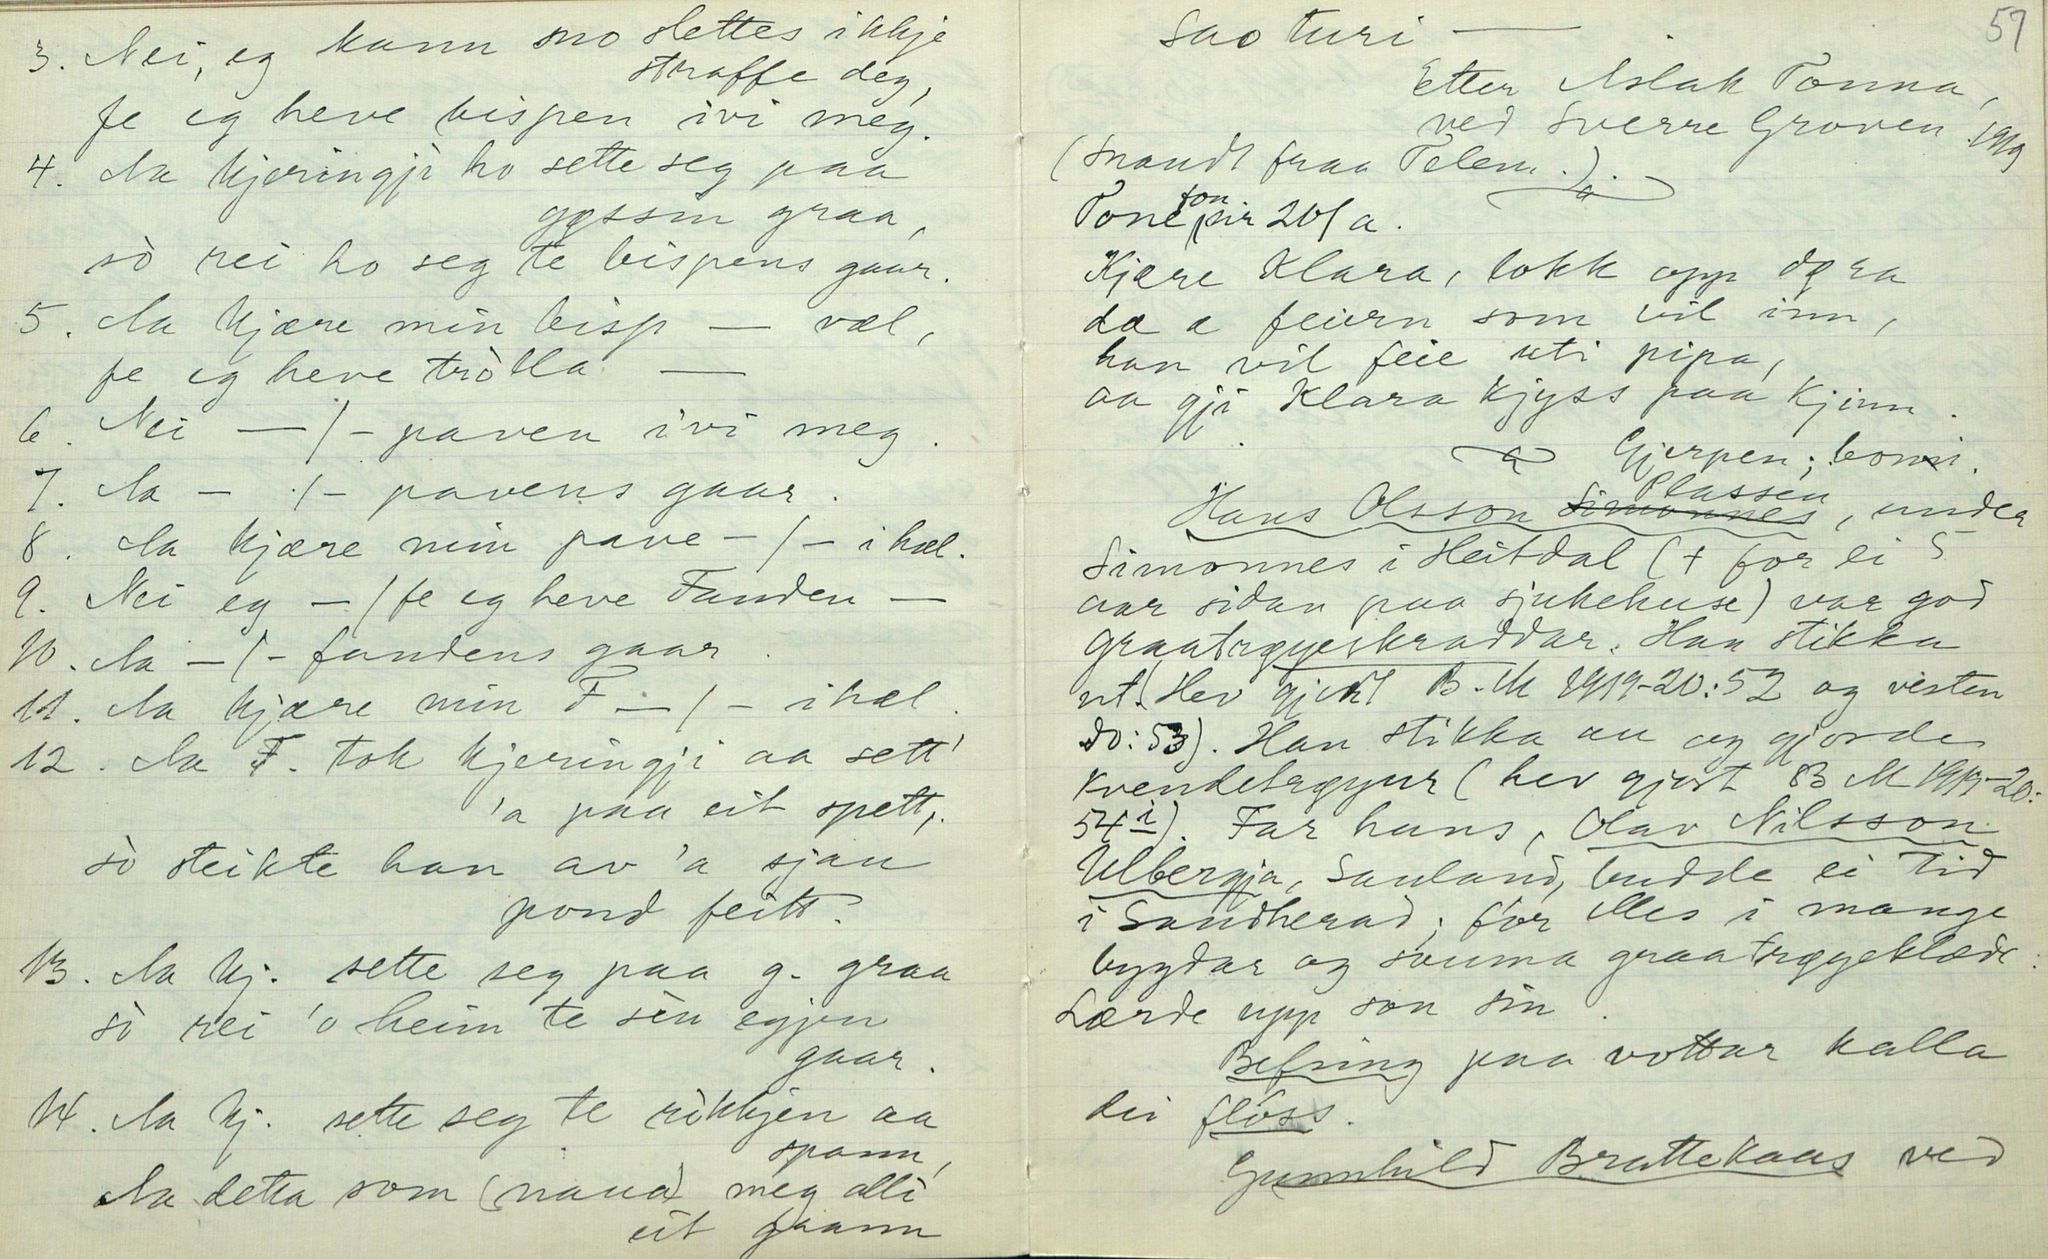 3. Nei, eg kann no slettes ikkje
straffe deg,
fe eg heve bispen ivi meg.
4. Aa kjeringji ho sette seg paa
gøssin graa,
sò rei ho seg te bispens gaar.
5. Aa kjære min bisp — væl,
fe eg heve tròlla —
6. Nei — /– paven ivi meg.
7. Aa – /– pavens gaar.
8. Aa kjære min pave – /– ihæl.
9. Nei eg – / fe eg heve Fanden –
10. Aa – /– fandens gaar.
11. Aa kjære min F – /– ihæl.
12. Aa F. tok kjeringji aa sett'
'a paa eit spett,
sò steikte han av 'a sjau
pond feitt.
13. Aa kj. sette seg paa g. graa
sò rei 'o heim te sèn egjen
gaar.
14. Aa kj. sette seg te ròkkjen aa
spann,
Aa detta som (naua) meg alli
eit gaann
57
Sao turi —
Etter Aslak Tonna,
ved Sverre Groven 1919
(Snaudt fraa Telem.).
Tone fon sir 201 a.
Kjære Klara, lokk opp døra
dæ æ feiern som vil inn,
han vil feie uti pipa,
aa gji Klara kjyss paa kjinn.
Gjerpen; bomi.
Hans Olsson Simonnes Plassen, under
Simonnes i Heitdal (+ for ei 5
aar sidan paa sjukehuse) var god
graatrøyeskraddar. Han stikka
ut. (Hev gjort B.M 1919-20:52 og vesten
do: 53). Han stikka au og gjorde
kvendetrøyur (hev gjort BM 1919-20:
54 i). Far hans, Olav Nilsson
Ulbergja, Sauland, budde ei tid
i Sandherad; fór elles i mange
bygdar og souma graatrøyeklæde.
Lærde upp son sin.
Befring paa vottar kalla
dei flóss.
Gunnhild Brattekaas ved